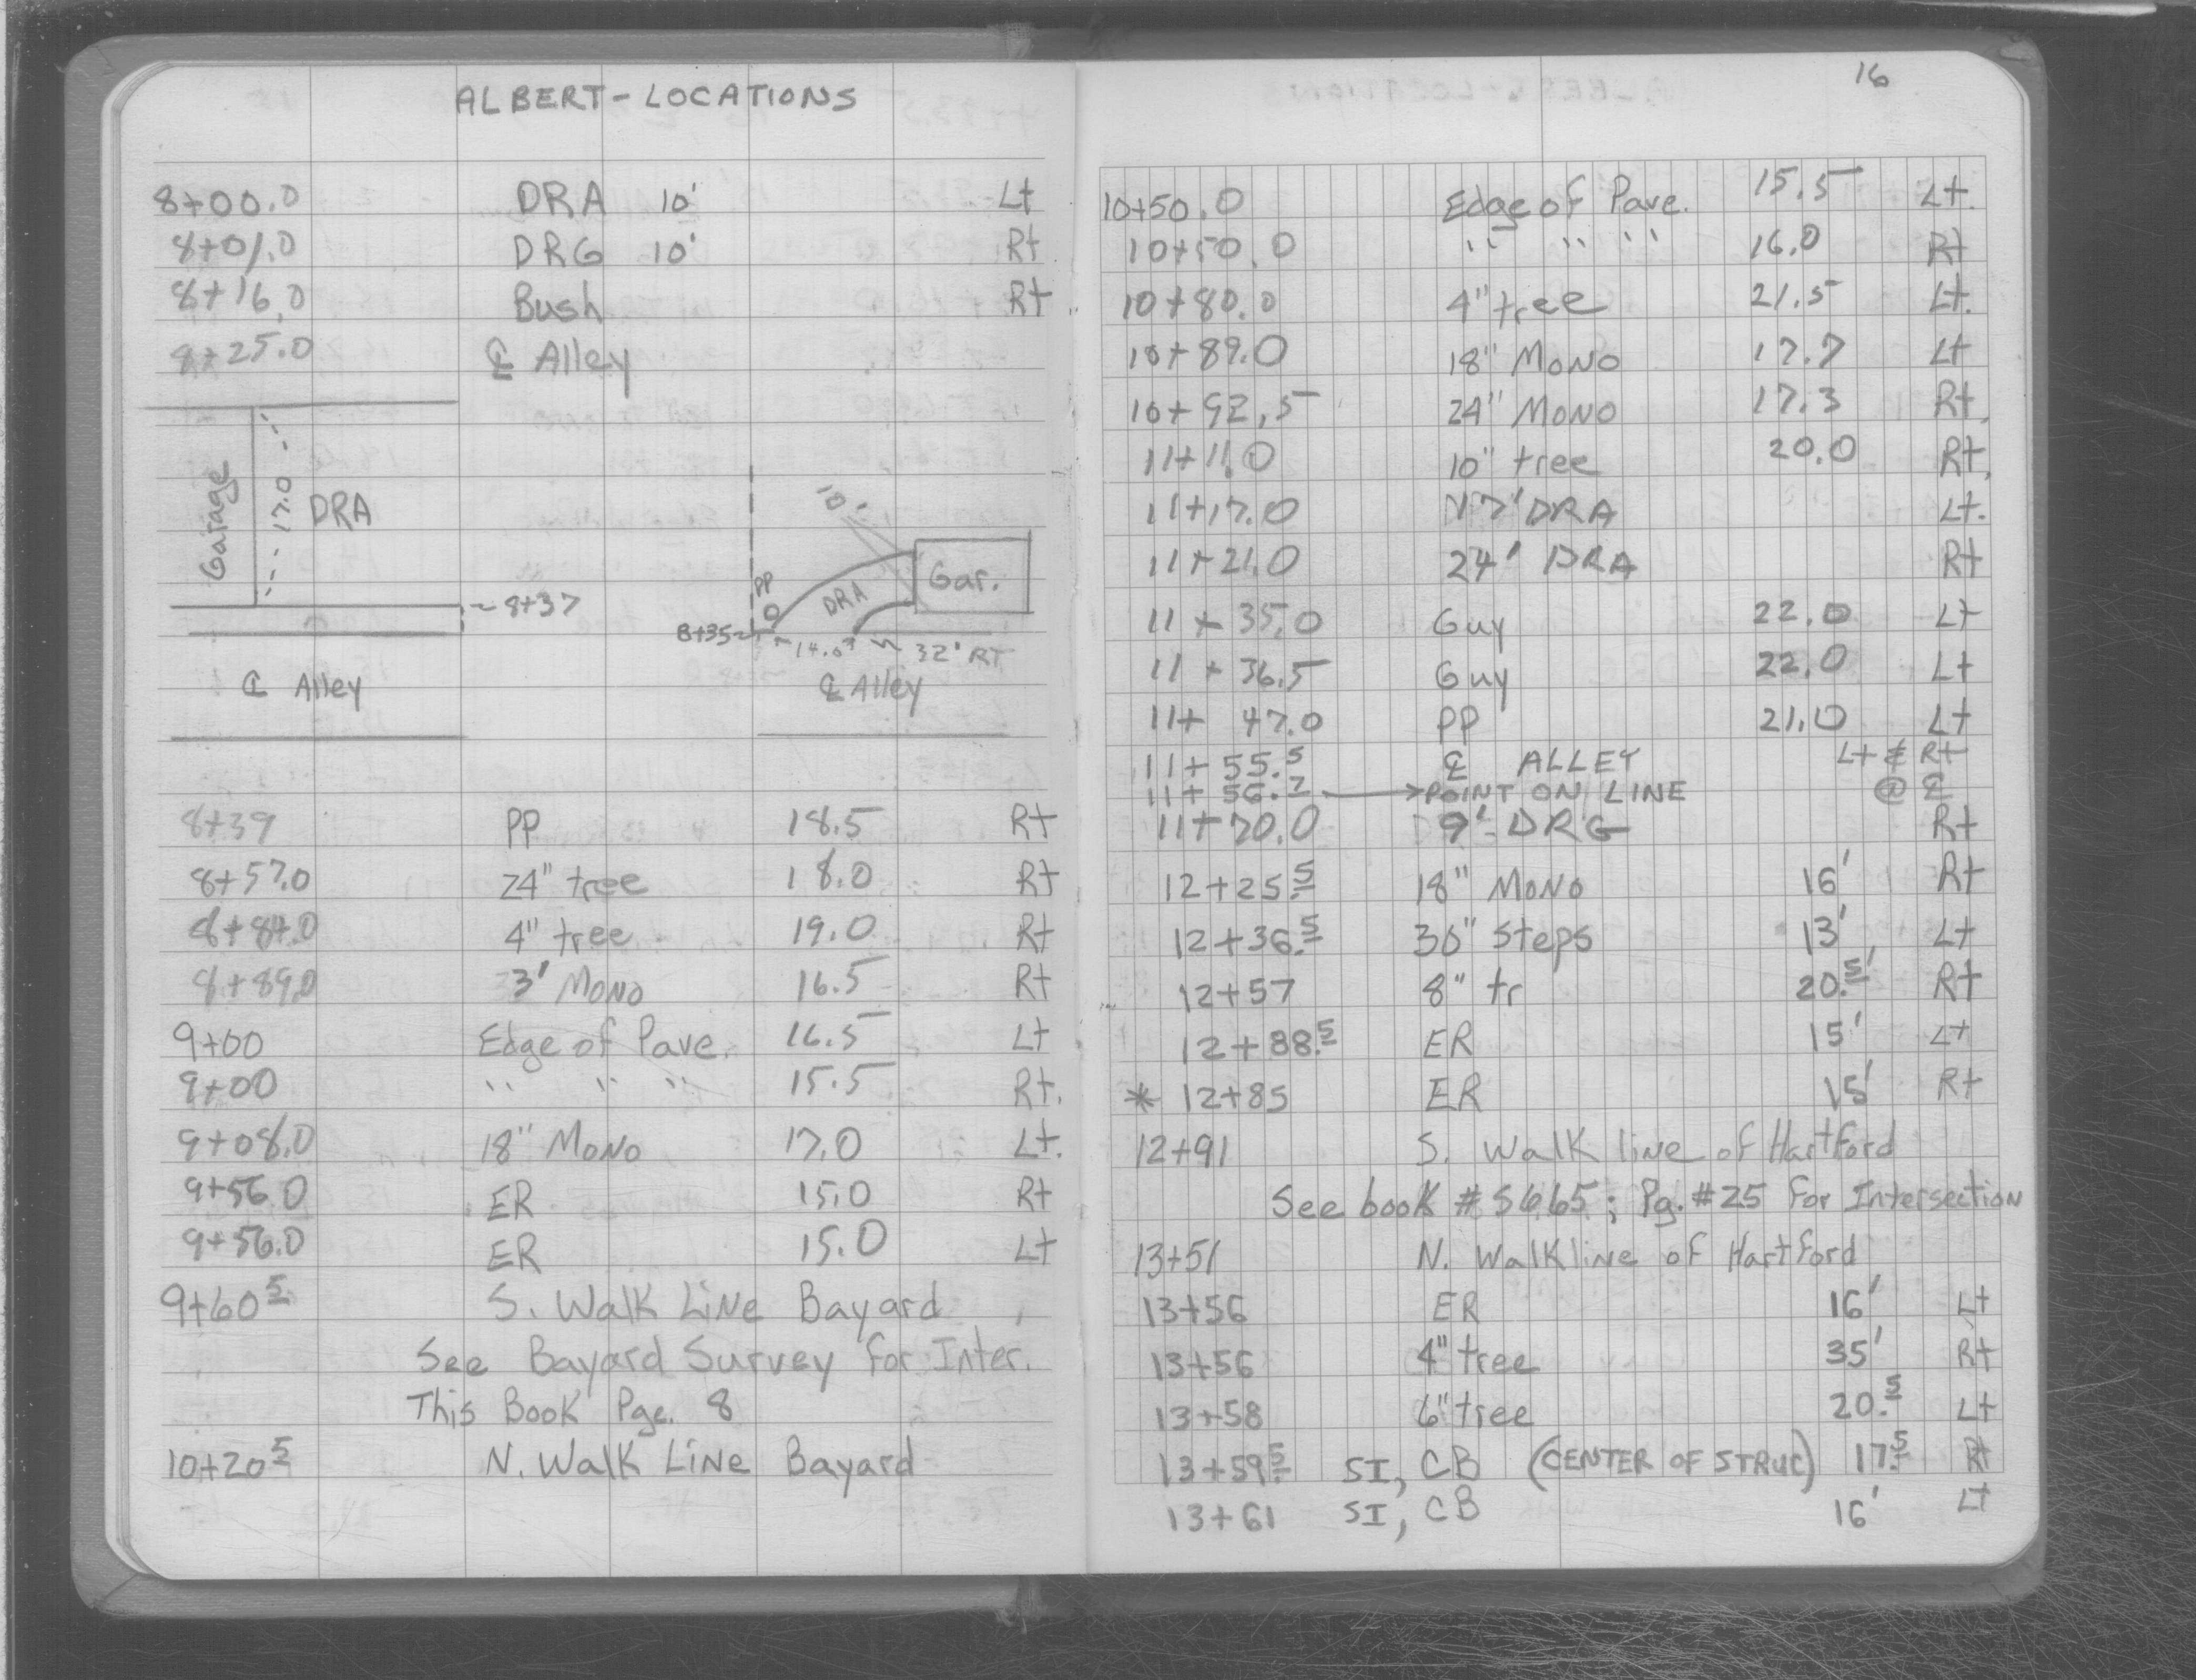 ALBERT - LOCATIONS
8+00.0 DRA 10' Lt
8+01.0 DRG 10' Rt
8+16.0 Bush Rt
8+25.0 ℄ Alley
Garage
17.0
DRA
~ 8+37
℄ Alley
10'
PP
DRA
Gar.
8+35
14.0
32' RT
℄ Alley
8+39 PP 18.5 Rt
8+57.0 24" tree 18.0 Rt
8+84.0 4" tree 19.0 Rt
8+89.0 3' Mono 16.5 Rt
9+00 Edge of Pave. 16.5 Lt
9+00 " " " 15.5 Rt.
9+08.0 18" Mono 17.0 Lt.
9+56.0 ER 15.0 Rt
9+56.0 ER 15.0 Lt
9+60.5 S. Walk Line Bayard
See Bayard Survey for Inter.
This Book Pge. 8
10+20.5 N. Walk Line Bayard
16
10+50.0 Edge of Pave. 15.5 Lt.
10+50.0 " " " 16.0 Rt
10+80.0 4" tree 21.5 Lt.
10+89.0 18" Mono 17.7 Lt
10+92.5 24" Mono 17.3 Rt.
11+11.0 10" tree 20.0 Rt.
11+17.0 17' DRA Lt.
11+21.0 24' DRA Rt
11+35.0 Guy 22.0 Lt
11+36.5 Guy 22.0 Lt
11+47.0 PP 21.0 Lt
11+55.5 ℄ ALLEY Lt & Rt
11+56.7 → POINT ON LINE @ ℄
11+70.0 9' DRG Rt
12+25.5 18" Mono 16' Rt
12+36.5 30" Steps 13' Lt
12+57 8" tr 20.5' Rt
12+88.5 ER 15' Lt
* 12+85 ER 15' Rt
12+91 S. Walk line of Hartford
See book # 5665; Pg. #25 for Intersection
13+51 N. Walkline of Hartford
13+56 ER 16' Lt
13+56 4" tree 35' Rt
13+58 6" tree 20.5 Lt
13+59.5 SI, CB (CENTER OF STRUC) 17.5 Rt
13+61 SI, CB 16' Lt